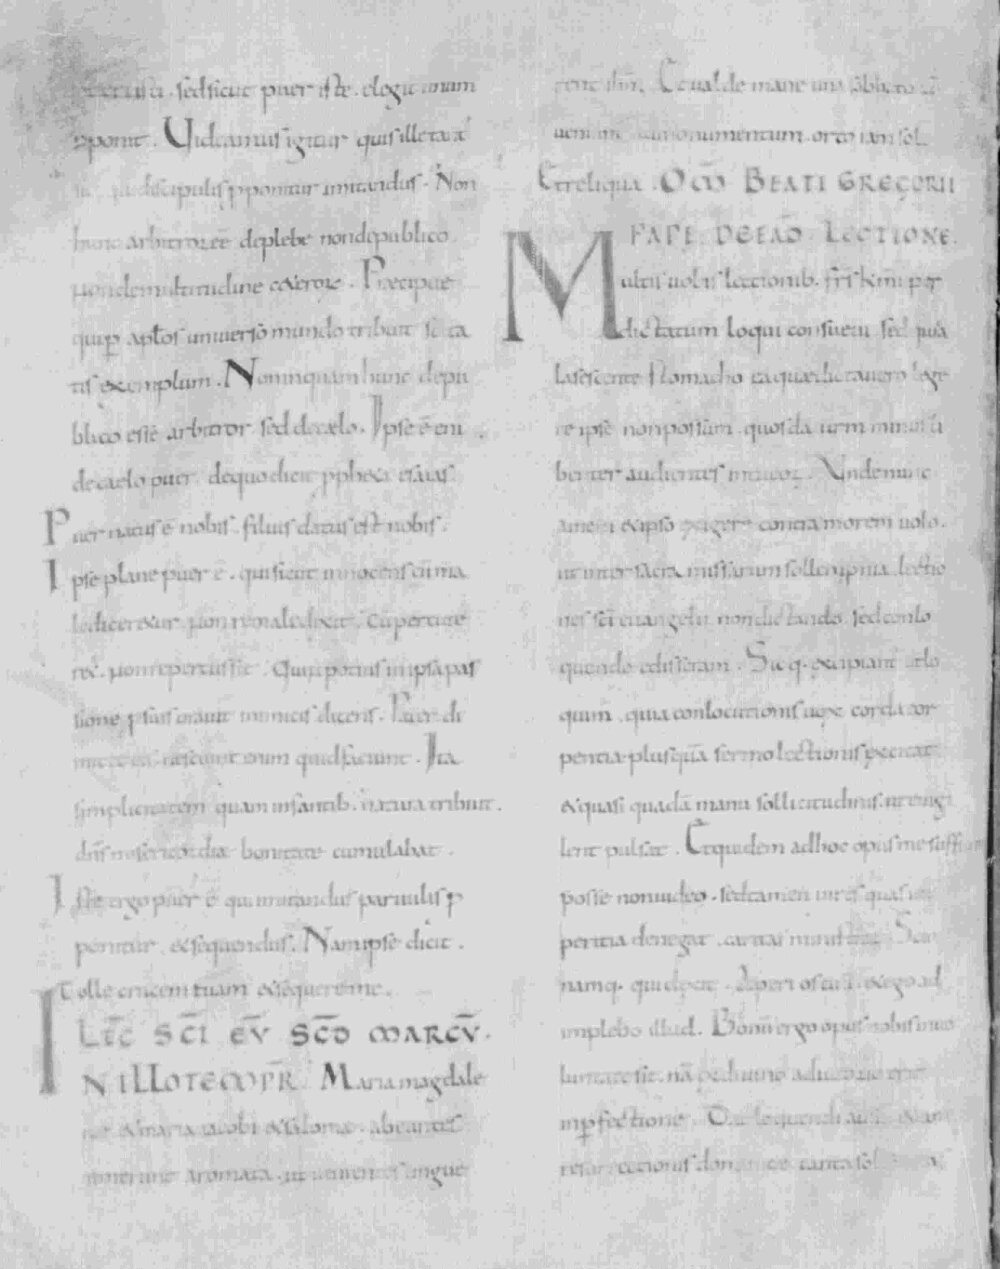 sed sicut puer iste. elogium unum
pponit. Uideamus igitur quis ille
discipulis pponitur imitandus. Non
hunc arbitror eē de plebe non de publico
non de multitudine ceterorū. Precipue
quip aptos uniuerso mundo tribuit
tis exemplum. Nonnquam hunc depu
blico esse arbitror sed de cælo. Ipse ē eni
de caelo puer. de quo dicit ppheta esaias.
Puer natus ē nobis. filius datus est nobis.
Ipse plane puer ē. qui sicut innocens cū ma
lediceretur. non remaledixit. cū percute
ret. non repercussit. Qui potius in ipsa pas
sione p suis orauit inimicis dicens. Pater di
nesciunt enim quid faciunt. Ita
simplicitatem quam infantib. natura tribuit.
dn̄s misericordiæ bonitate cumulabat.
Iste ergo puer ē qui imitandus paruulis p
ponitur. et sequendus. Nam ipse dicit.
Tolle crucem tuam et sequere me.
LEC̄ SC̄I EV̄ SC̄D MARCV̄.
IN ILLO TEMPR̄. Maria magdale
et maria iacobi et salome. abeuntes
emerunt aromata. ut uenientes ungue
rent ihm̄. Et ualde mane una sabbato
ueniunt ad monumentum. orto iam sol
Et reliqua. OM̄ BEATI GREGORII
PAPE. DE EAD̄. LECTIONE.
Multis uobis lectionib. fr̄s km̄i per
dictatum loqui consueui. sed quia
lasescente stomacho ea quæ dictauero lege
re ipse non possum. quosdā urm minus li
benter audientes intueor. Unde nunc
a me ipso exigere contra morem uolo.
ut inter sacra missarum sollempnia. lectio
nes sc̄i euangelii non dictando. sed conlo
quendo edisseram. Sicq. excipiant. elo
quim. quia conlocutionis uox corda tor
pentia plusquā sermo lectionis excitat
et quasi quadā manu sollicitudinis ut euigi
lent pulsat. Et quidem ad hoc opus me suffi
posse non uideo. sed tamen uires quas im
peritia denegat. caritas ministrat. Scio
namq. qui dixit. Aperi os tuū. et ego ad
implebo illud. Bonū ergo opus nobis in uo
luntate sit. nā ex diuino adiutorio erit
in pfectione. Dat loquendi
resurrectionis dominice